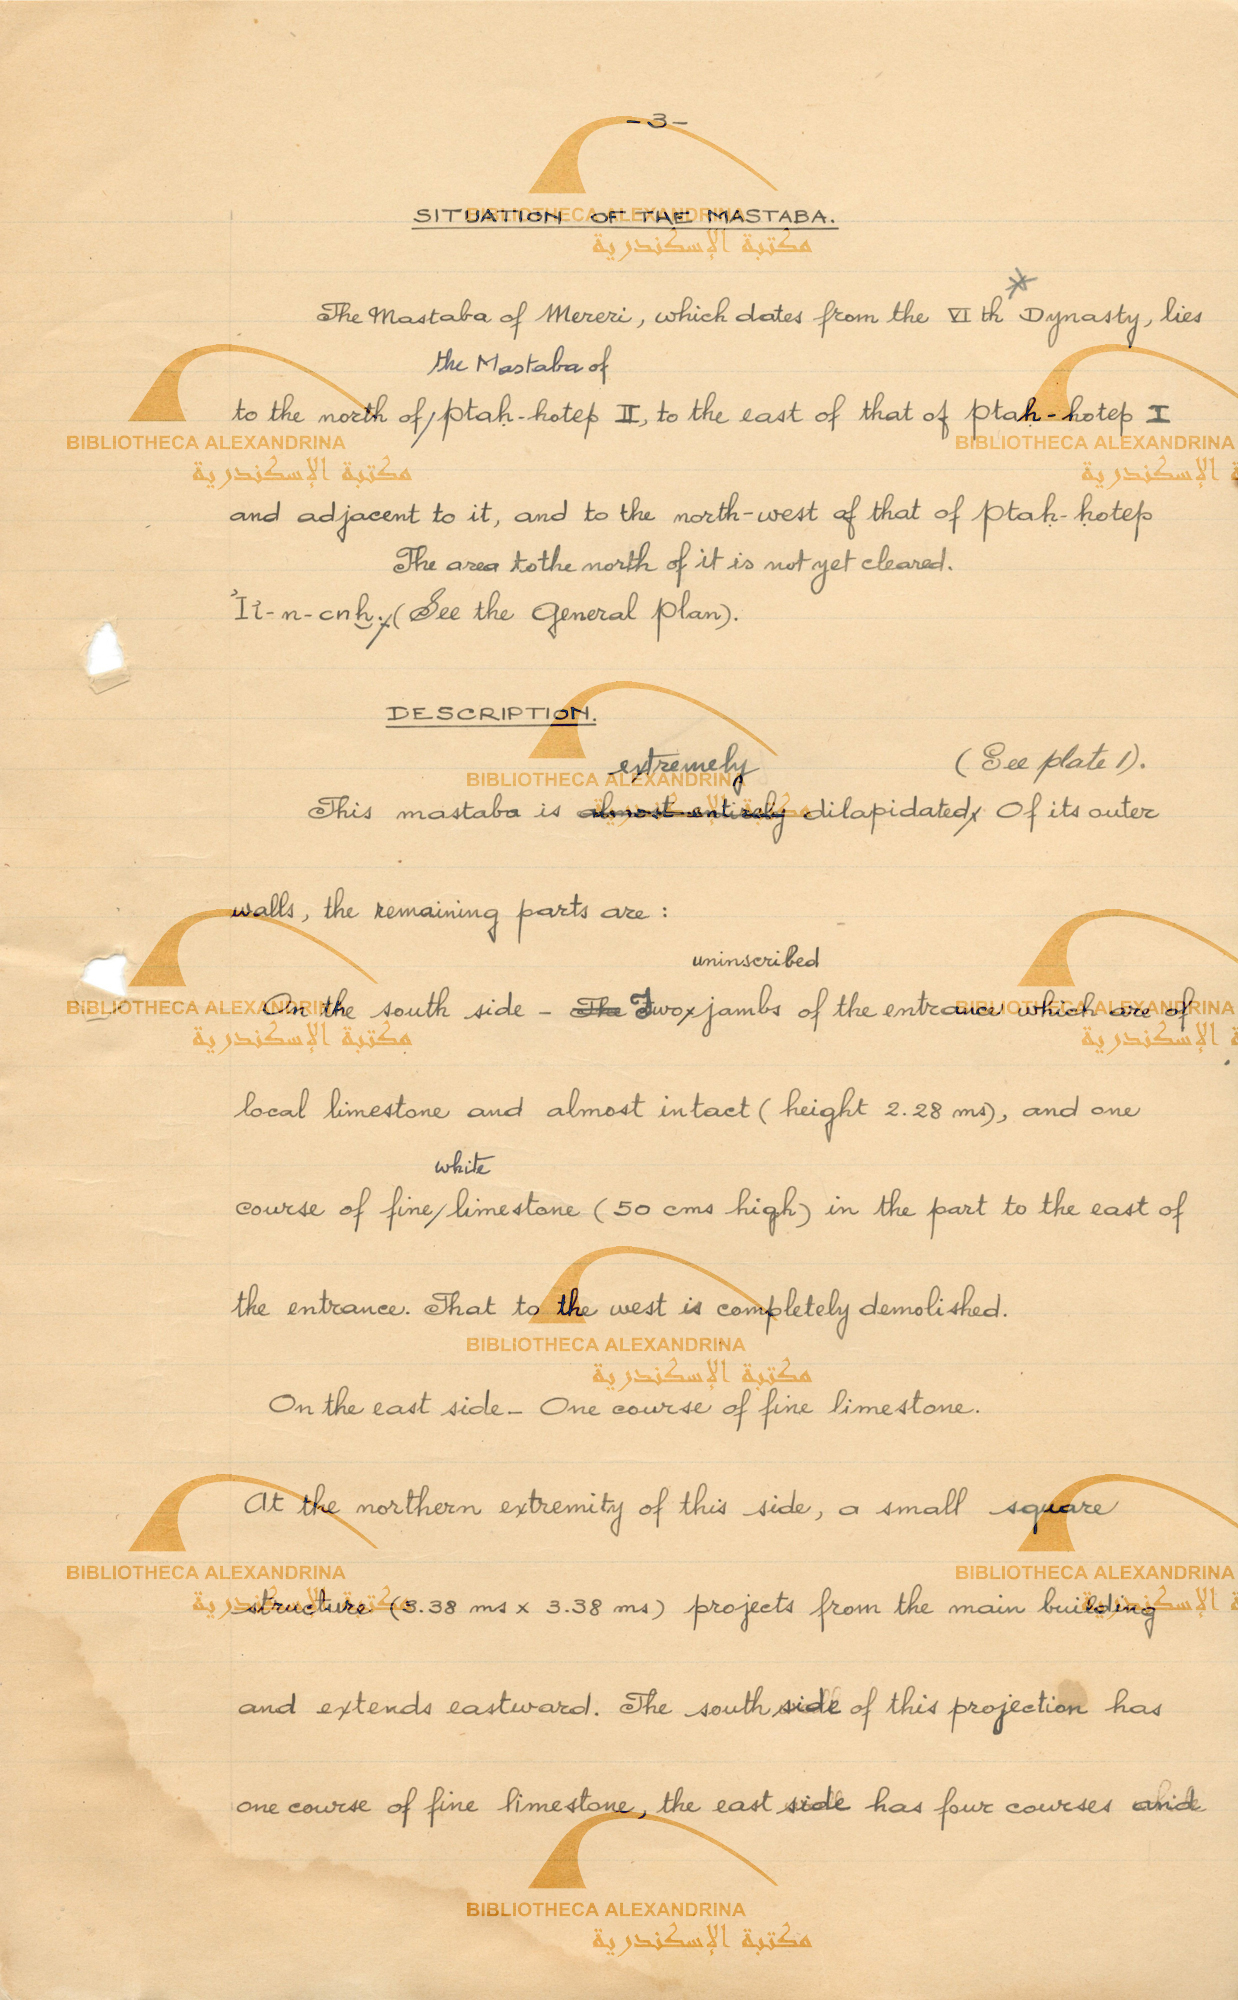 -3-
SITUATION OF THE MASTABA.
The Mastaba of Mereri, which dates from the VI th Dynasty, lies
the Mastaba of
to the north of/Ptaḥ-hotep II, to the east of that of Ptaḥ-hotep I
and adjacent to it, and to the north-west of that of Ptaḥ-ḥotep
The area to the north of it is not yet cleared.
'Iı̓-n-cnḫ. (See the General Plan).
DESCRIPTION.
extremely (See plate 1).
This mastaba is almost entirely dilapidated. Of its outer
walls, the remaining parts are :
uninscribed
On the south side - The Two jambs of the entrance which are of
local limestone and almost intact (height 2.28 ms), and one
white
course of fine/limestone (50 cms high) in the part to the east of
the entrance. That to the west is completely demolished.
On the east side - One course of fine limestone.
At the northern extremity of this side, a small square
structure (3.38 ms x 3.38 ms) projects from the main building
and extends eastward. The south side of this projection has
one course of fine limestone, the east side has four courses and
BIBLIOTHECA ALEXANDRINA
مكتبة الإسكندرية